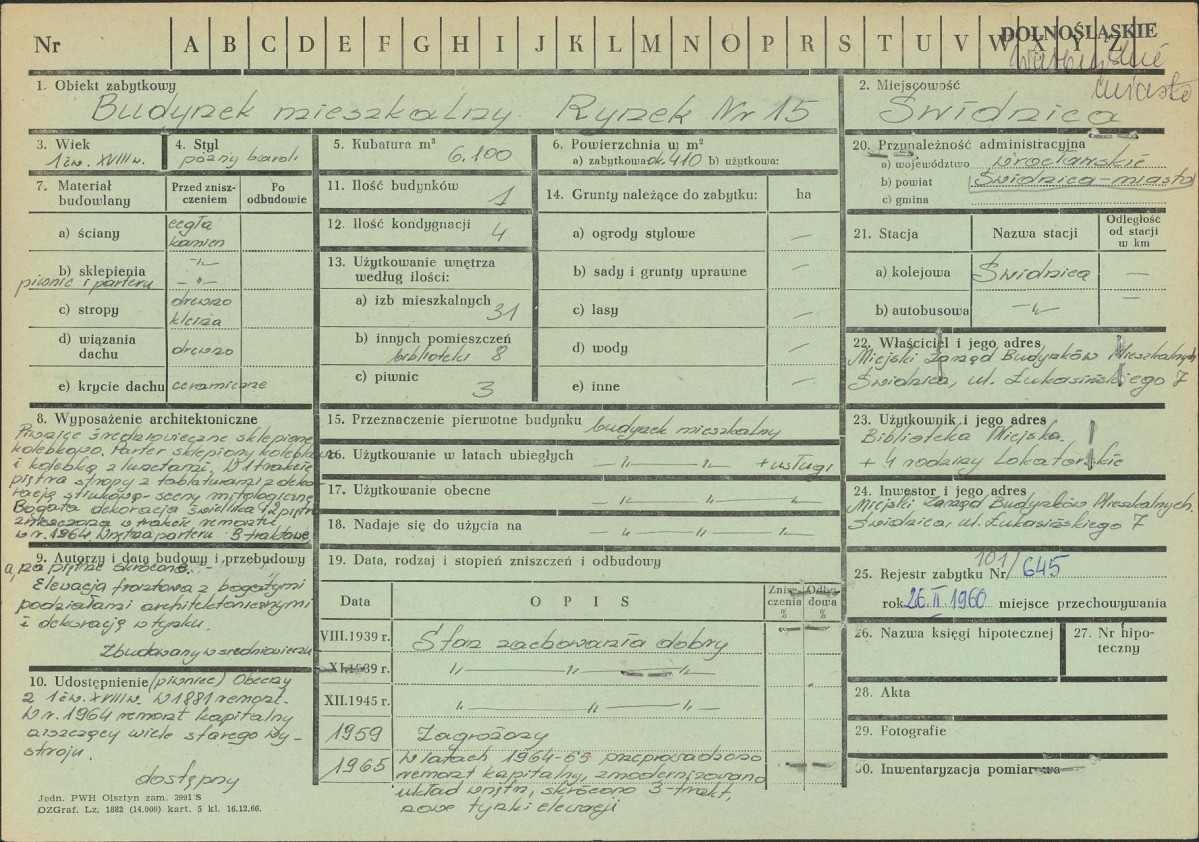 Nr A B C D E F G H I J K L M N O P R S T U V W X Y Z DOLNOŚLĄSKIE
miasto
1. Obiekt zabytkowy
Budynek mieszkalny Rynek Nr 15
2. Miejscowość
Świdnica
3. Wiek
1 ćw. XVIII w.
4. Styl
późny barok
5. Kubatura m³ 6.100
6. Powierzchnia w m²
a) zabytkowa ok. 410 b) użytkowa:
20. Przynależność administracyjna
a) województwo wrocławskie
b) powiat Świdnica-miasto
c) gmina
7. Materiał budowlany
Przed zniszczeniem
Po odbudowie
a) ściany cegła
kamień
b) sklepienia -"-
piwnic i parteru -"-
c) stropy drewno
kleina
d) wiązania dachu drewno
e) krycie dachu ceramiczne
11. Ilość budynków 1
12. Ilość kondygnacji 4
13. Użytkowanie wnętrza
według ilości:
a) izb mieszkalnych 31
b) innych pomieszczeń
biblioteki 8
c) piwnic 3
14. Grunty należące do zabytku: ha
a) ogrody stylowe —
b) sady i grunty uprawne —
c) lasy —
d) wody —
e) inne —
21. Stacja
Nazwa stacji
Odległość od stacji w km
a) kolejowa Świdnica —
b) autobusowa -"- —
22. Właściciel i jego adres
Miejski Zarząd Budynków Mieszkalnych
Świdnica, ul. Łukasińskiego 7
8. Wyposażenie architektoniczne
Piwnice średniowieczne sklepione
kolebkowo. Parter sklepiony kolebkowo
i kolebką z lunetami. W 1 trakcie
piętra stropy z tablaturami z deko-
racją stiukową - sceny mitologiczne
Bogata dekoracja świetlika i 2 piętra
zniszczona w trakcie remontu
w r. 1964. Wnętrza parteru 3-traktowe
15. Przeznaczenie pierwotne budynku budynek mieszkalny
16. Użytkowanie w latach ubiegłych -"- + usługi
17. Użytkowanie obecne -"- -"- -"-
18. Nadaje się do użycia na -"- -"- -"-
23. Użytkownik i jego adres
Biblioteka Miejska
+ 4 rodziny lokatorskie
24. Inwestor i jego adres
Miejski Zarząd Budynków Mieszkalnych.
Świdnica, ul. Łukasińskiego 7
9. Autorzy i data budowy i przebudowy
a, na piętrze skrócone. -
Elewacja frontowa z bogatymi
podziałami architektonicznymi
i dekoracją w tynku.
Zbudowany w średniowieczu
19. Data, rodzaj i stopień zniszczeń i odbudowy
Data
OPIS
Zniszczenia %
Odbudowa %
VIII.1939 r. Stan zachowania dobry
XI.1939 r. -"- -"- -"-
XII.1945 r. -"- -"- -"-
1959 Zagrożony
1965 W latach 1964-65 przeprowadzono
remont kapitalny, zmodernizowano
układ wnętrz, skrócono 3-trakt,
nowe tynki elewacji
25. Rejestr zabytku Nr 101/645
rok 26.II.1960 miejsce przechowywania
26. Nazwa księgi hipotecznej
27. Nr hipoteczny
28. Akta
29. Fotografie
30. Inwentaryzacja pomiarowa
10. Udostępnienie (piwnice) Obecny
z 1 ćw. XVIII w. W 1881 remont.
W r. 1964 remont kapitalny
niszczący wiele starego wy-
stroju.
dostępny
Jedn. PWH Olsztyn zam. 3991 S
OZGraf. Lz. 1882 (14.000) kart. 5 kl. 16.12.66.